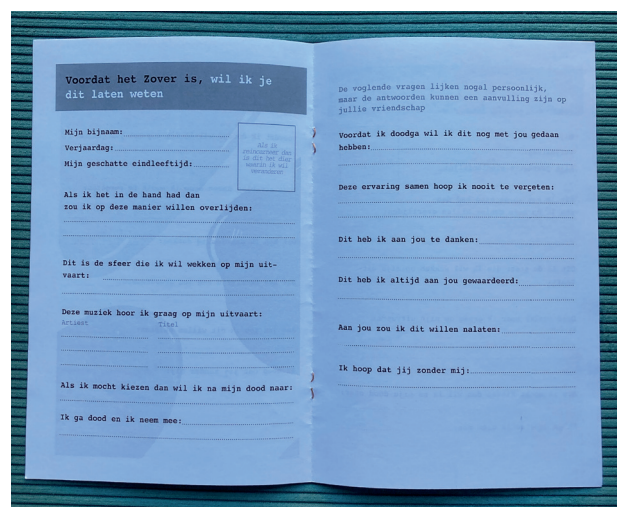 Voordat het Zover is, wil ik je
dit laten weten
Mijn bijnaam:
Verjaardag:
Mijn geschatte eindleeftijd:
Als ik
is dit het dier
waarin ik wil
Als ik het in de hand had dan
zou ik op deze manier willen overlijden:
Dit is de sfeer die ik wil wekken op mijn uit-
vaart:
Deze muziek hoor ik graag op mijn uitvaart:
Artiest Titel
Als ik mocht kiezen dan wil ik na mijn dood naar:
Ik ga dood en ik neem mee:
De voglende vragen lijken nogal persoonlijk,
maar de antwoorden kunnen een aanvulling zijn op
jullie vriendschap
Voordat ik doodga wil ik dit nog met jou gedaan
hebben:
Deze ervaring samen hoop ik nooit te vergeten:
Dit heb ik aan jou te danken:
Dit heb ik altijd aan jou gewaardeerd:
Aan jou zou ik dit willen nalaten:
Ik hoop dat jij zonder mij: